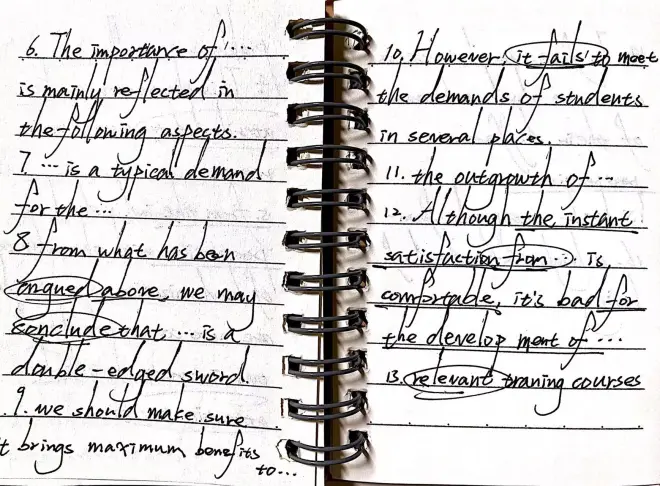 6. The importance of ...
is mainly reflected in
the following aspects.
7. ... is a typical demand
for the ...
8 from what has been
argued above, we may
conclude that ... is a
double-edged sword.
9. we should make sure
it brings maximum benefits
to...
10. However, it fails to meet
the demands of students
in several places.
11. the outgrowth of ...
12. Although the instant
satisfaction from ... is
comfortable, it's bad for
the development of ...
13. relevant traning courses